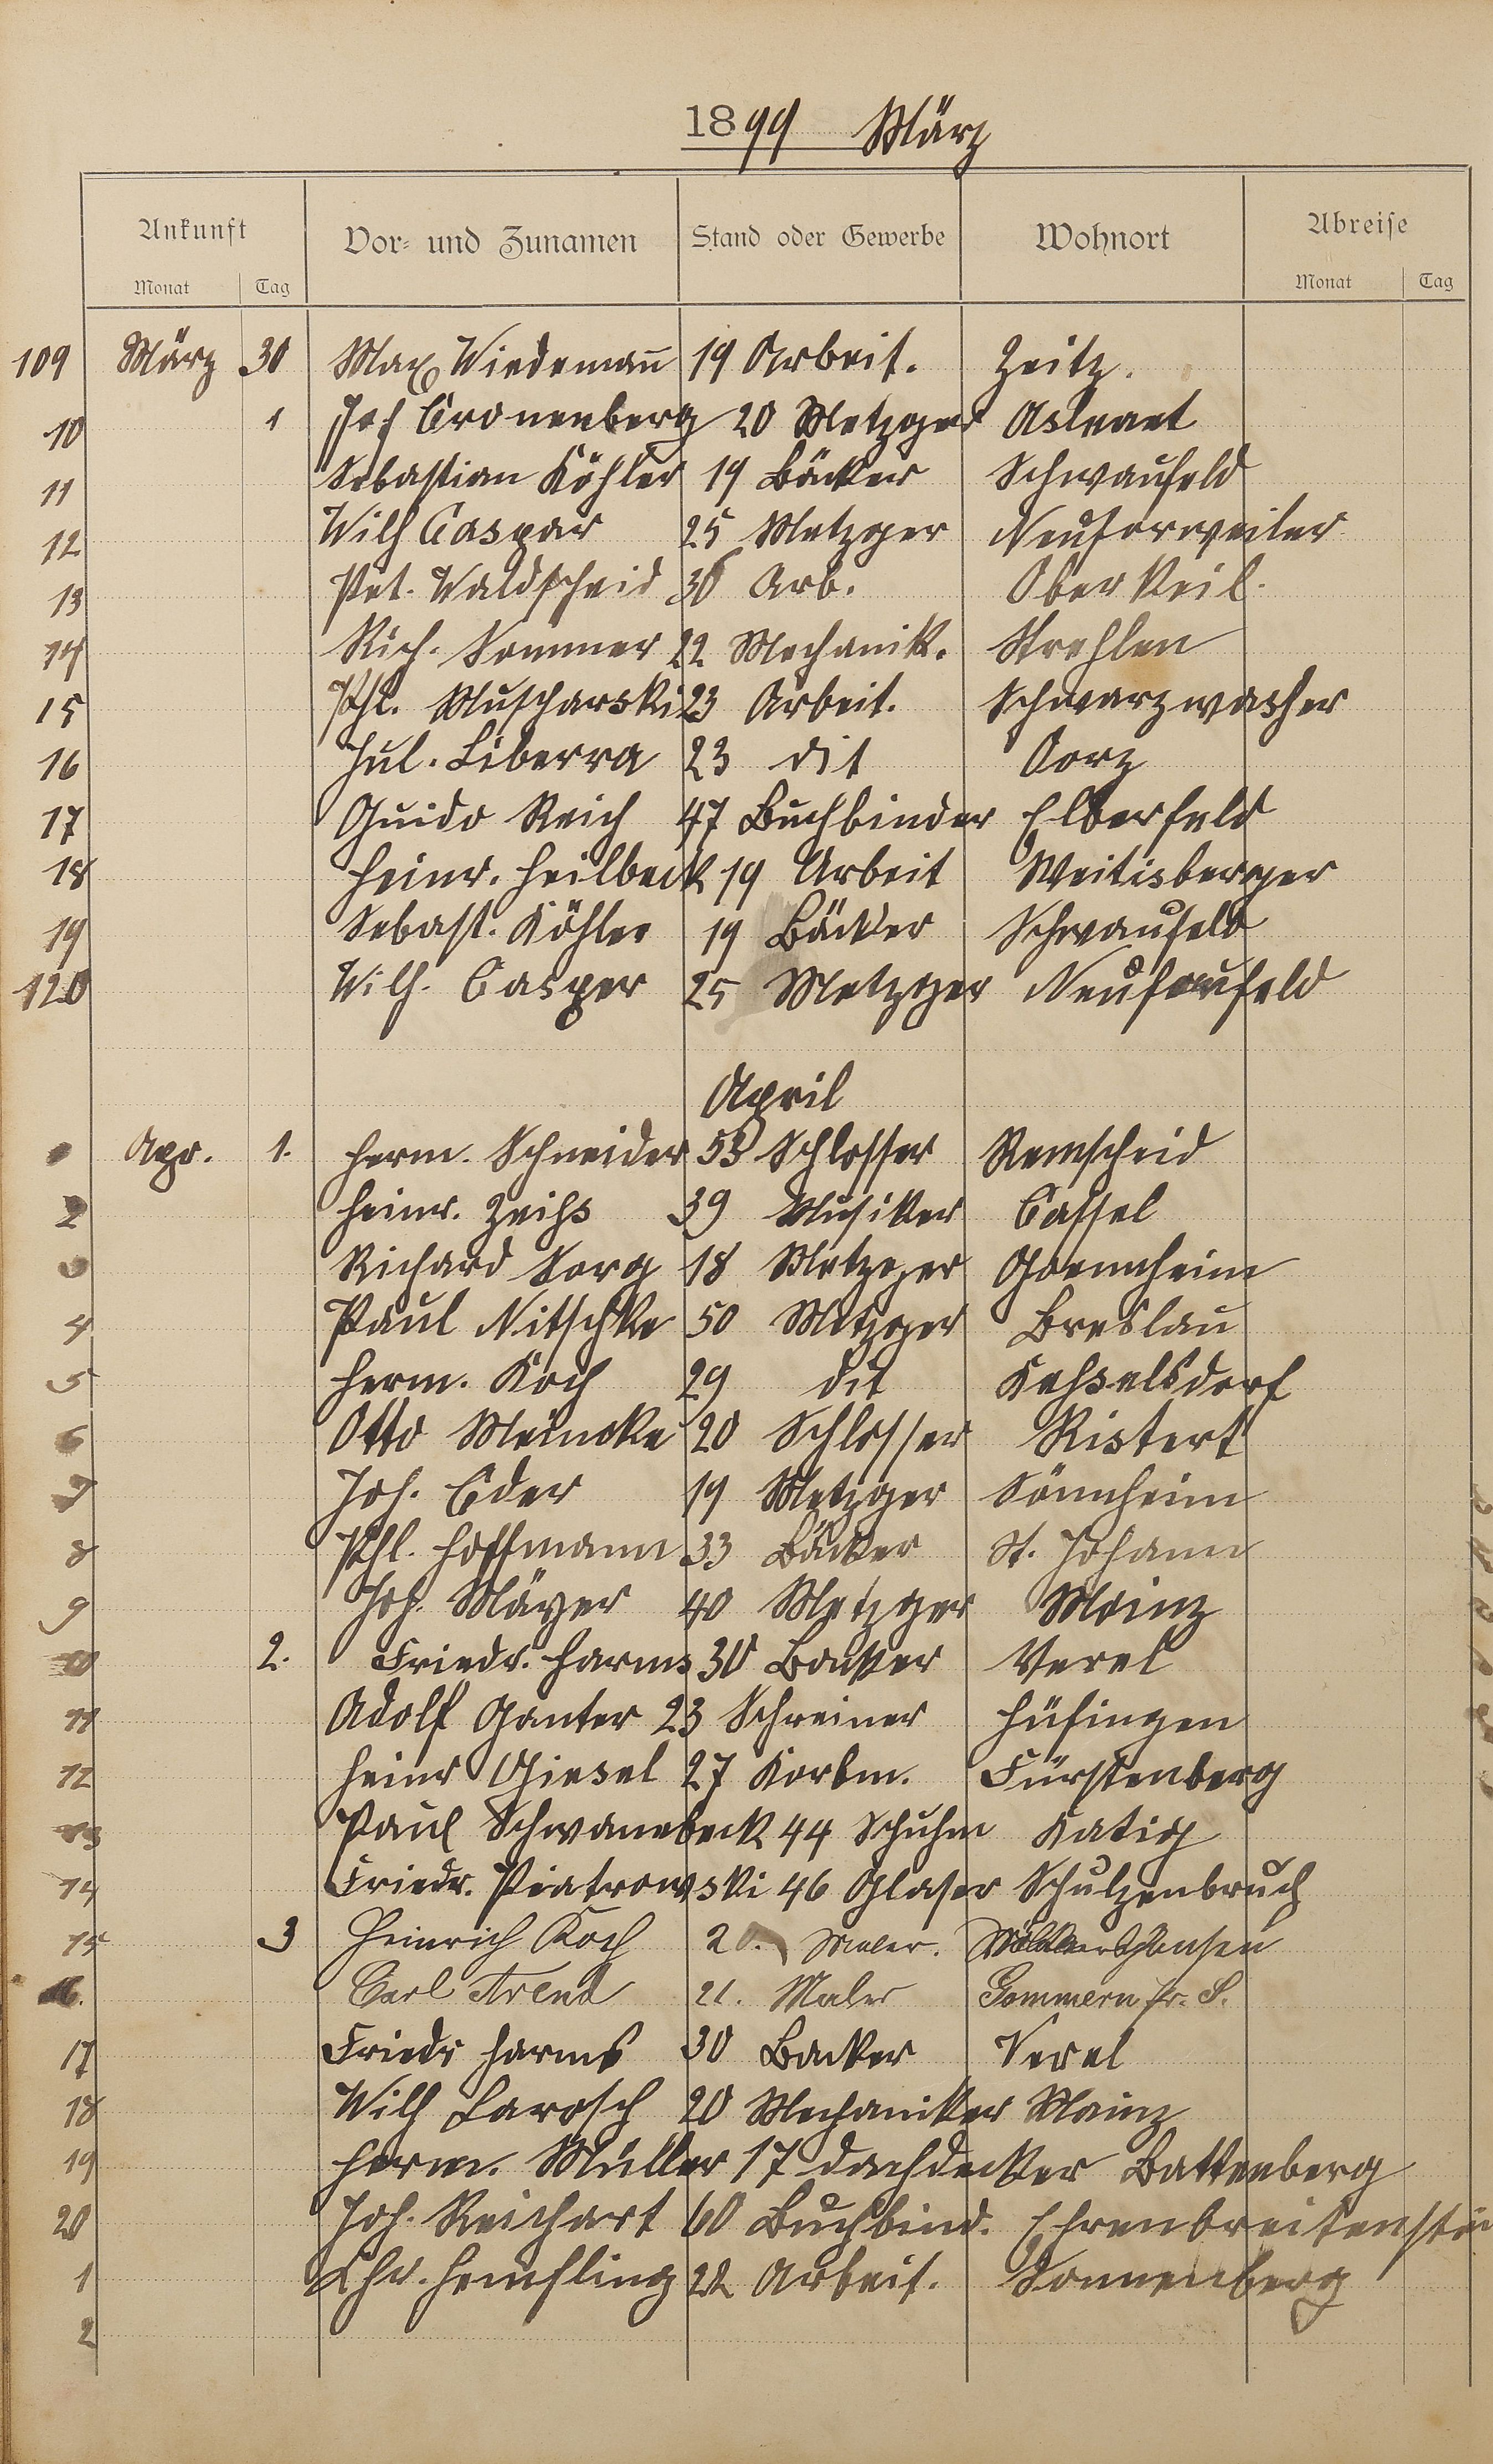 1899 März
Ankunft Vor- und Zunamen Stand oder Gewerbe Wohnort Abreise
Monat Tag Monat Tag
109 März 30 Max Wiedemann 19 Arbeit. Zeitz.
10 1 Jos Cronenberg 20 Metzger
11 Sebastian Köhler 19 Bäcker Schwanfeld
12 Wilh Caspar 25 Metzger Neuforweiler
13 Pet. Waldscheid 30 Arb. Ober Keil.
14 Rich. Sommer 22 Mechanik. Strehlen
15 Phl. Muscharski 23 Arbeit. Schwarzwasser
16 Jul. Liberra 23 dit
17 Guido Reich 47 Buchbinder Elberfeld
18 Heinr. Heilbeck 19 Arbeit Weitisberger
19 Sebast. Köhler 19 Bäcker Schwanfeld
120 Wilh. Casper 25 Metzger
April
Apr. 1. Herm. Schneider 53 Schlosser Remscheid
2 Heinr. Zeihs 39 Musiker Cassel
3 Richard Sorg 18 Metzger Goennheim
4 Paul Nitschke 50 Metzger Breslau
5 Herm. Koch 29 dit Kesselsdorf
6 Otto Meincke 20 Schlosser Ristert
7 Joh. Eder 19 Metzger Sönnheim
8 Phl. Hoffmann 33 Bäcker St. Johann
9 Joh. Mäyer 40 Metzger Mainz
10 2. Friedr. Harms 30 Backer Verel
11 Adolf Ganter 23 Schreiner Hüfingen
12 Heinr Giesel 27 Korbm. Fürstenberg
13 Paul Schwanebeck 44 Schuhm Katig
14 Friedr. Piatrowski 46 Glaser Schulzenbruch
15 3 Heinrich Koch 20. Maler.
16. Carl Arend 21. Maler Gommern Pr. S.
17 Friedr Harms 30 Backer Verel
18 Wilh Larosch 20 Mechaniker Mainz
19 Herm. Müller 17 Dachdecker Battenberg
20 Joh. Reichart 60 Buchbind. Ehrenbreitenstein
1 Chr. Hemfling 22 Arbeit. Sonnenberg
2